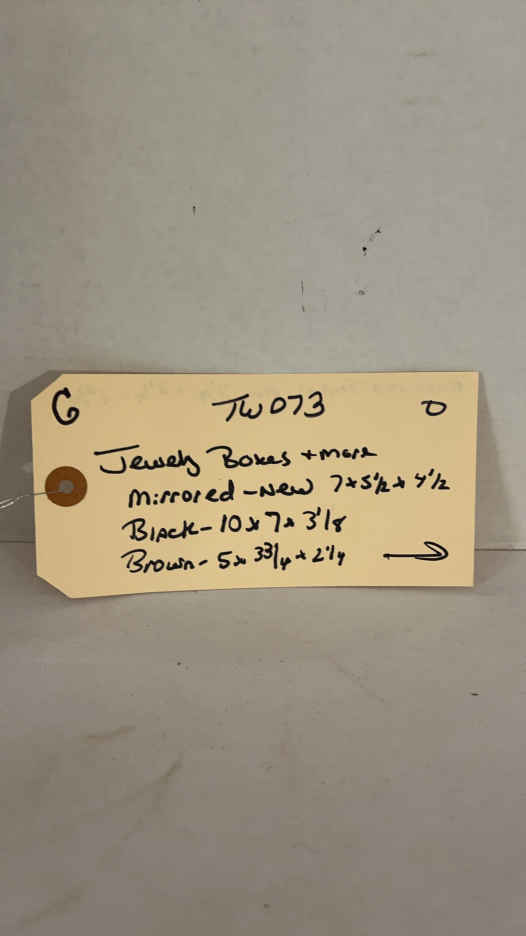 G TW073 D
Jewely Boxes + more
Mirrored - New 7 x 5 1/2 x 4 1/2
Black - 10 x 7 x 3 1/8
Brown - 5 x 3 3/4 x 2 1/4 →